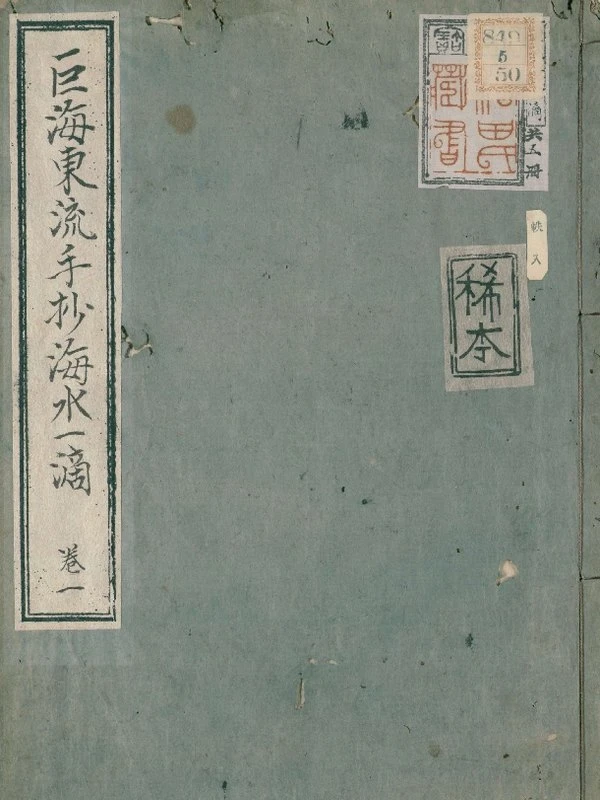 共五冊
田氏
藏書
5
50
帙入
稀本
巨海東流手抄海水一滴 卷一